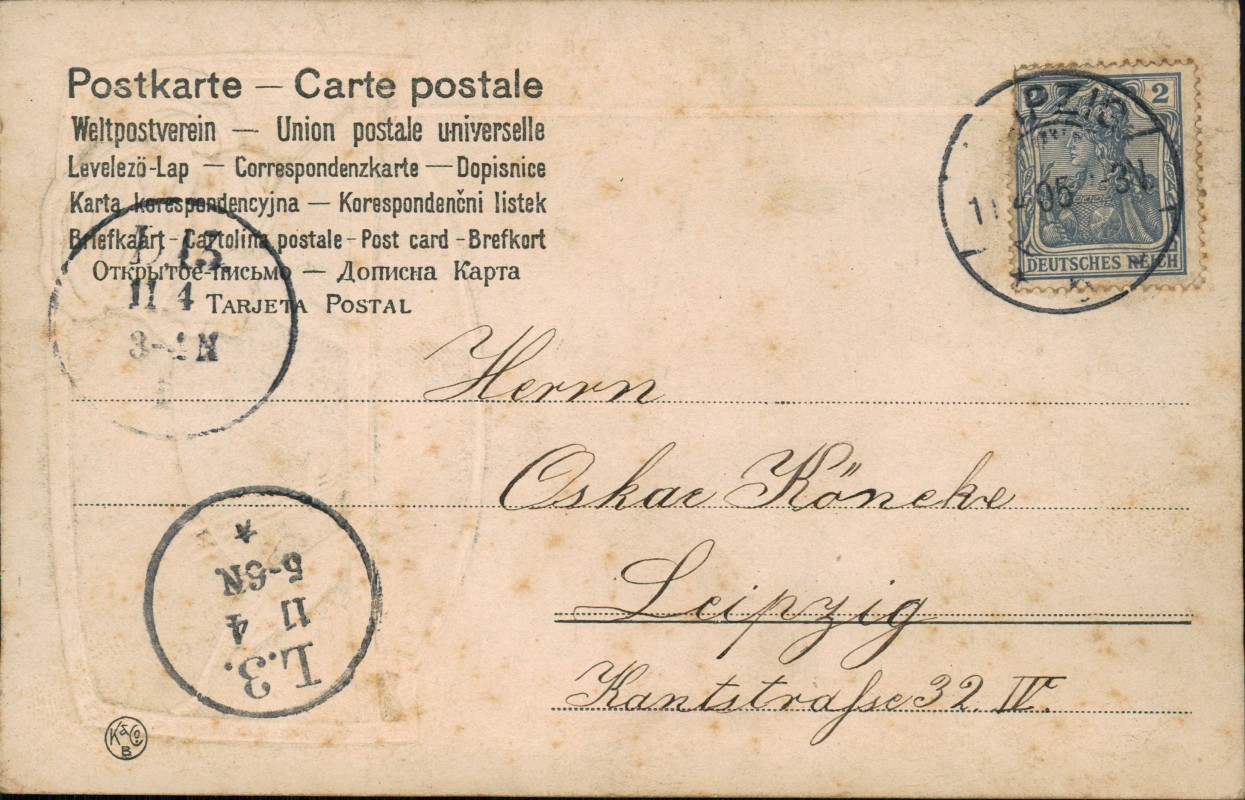 Postkarte — Carte postale
Weltpostverein — Union postale universelle
Levelezö-Lap — Correspondenzkarte — Dopisnice
Karta korespondencyjna — Korespondenčni listek
Briefkaart - Cartolina postale - Post card - Brefkort
Открытое-письмо — Дописна Карта
Tarjeta Postal
2
PZIG
11 4 05
DEUTSCHES REICH
L.13.
11 4
3-4N
Herrn
Oskar Köncke
Leipzig
Kantstraße 32 IV.
L.3.
11 4
5-6N
K & Co.
B